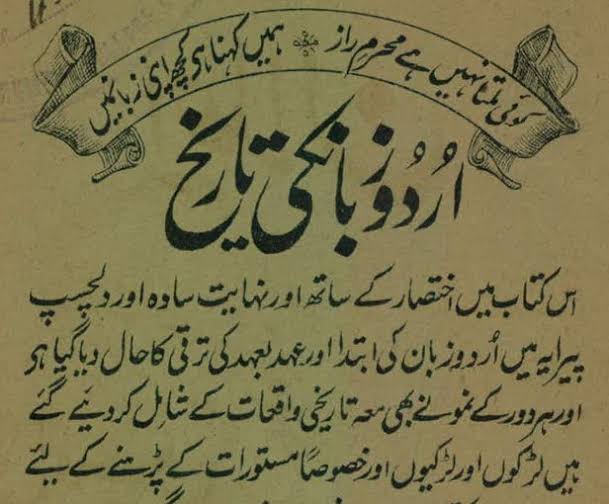 کوئی ملتا نہیں ہے محرم راز ہمیں کہنا ہو کچھ اپنی زبانمیں
اُردو زبانکی تاریخ
اس کتاب میں اختصار کے ساتھ اور نہایت سادہ اور دلچسپ
پیرایہ میں اُردو زبان کی ابتدا اور عہد بعہد کی ترقی کا حال دیا گیا ہو
اور ہر دور کے نمونے بھی معہ تاریخی واقعات کے شامل کردیئے گئے
ہیں لڑکوں اور لڑکیوں اور خصوصاً مستورات کے پڑہنے کے لئے